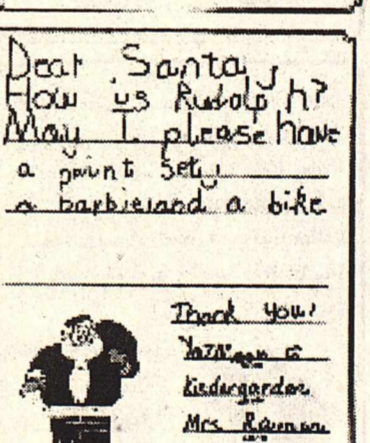 Dear Santa,
How is Rudolph?
May I please have
a paint set,
a barbie, and a bike
Thank you!
Kindergarden
Mrs.